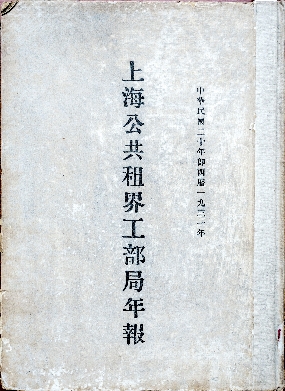 中華民國二十年即西曆一九三一年
上海公共租界工部局年報